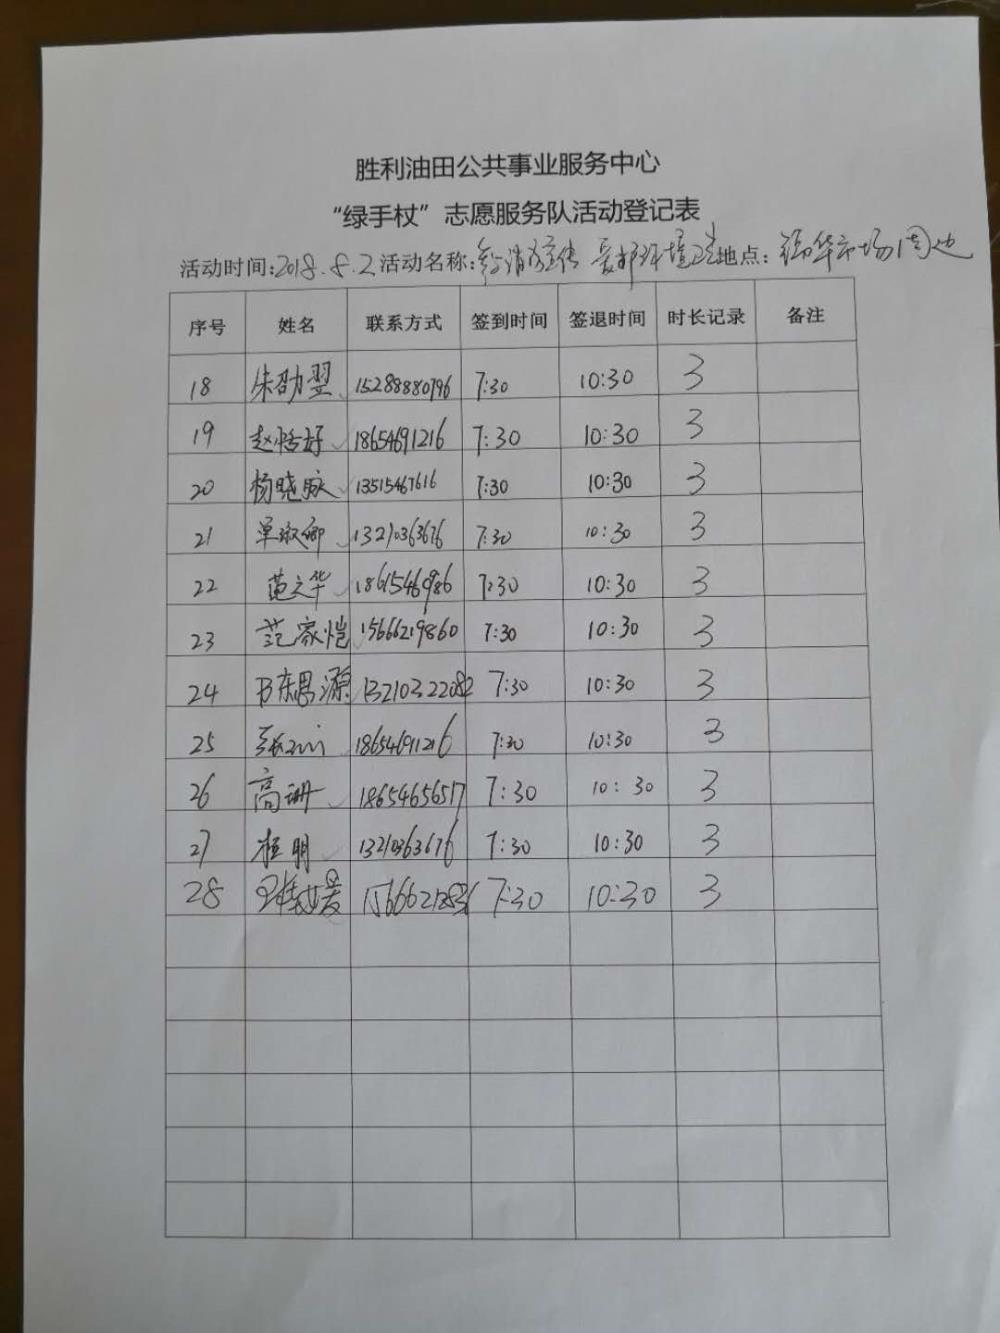 胜利油田公共事业服务中心
“绿手杖”志愿服务队活动登记表
活动时间:2018.8.2 活动名称: 环境卫 地点: 华市场周边
序号 姓名 联系方式 签到时间 签退时间 时长记录 备注
18 朱劭翌 15288880796 7:30 10:30 3
19 赵恬好 18654691216 7:30 10:30 3
20 杨晓 13515467616 7:30 10:30 3
21 单淑卿 13210363676 7:30 10:30 3
22 范文华 1861546986 7:30 10:30 3
23 范家恺 15666219860 7:30 10:30 3
24 源 13210322082 7:30 10:30 3
25 张 18654691216 7:30 10:30 3
26 高珊 18654656517 7:30 10:30 3
27 程明 13210363676 7:30 10:30 3
28 媛 7:30 10:30 3